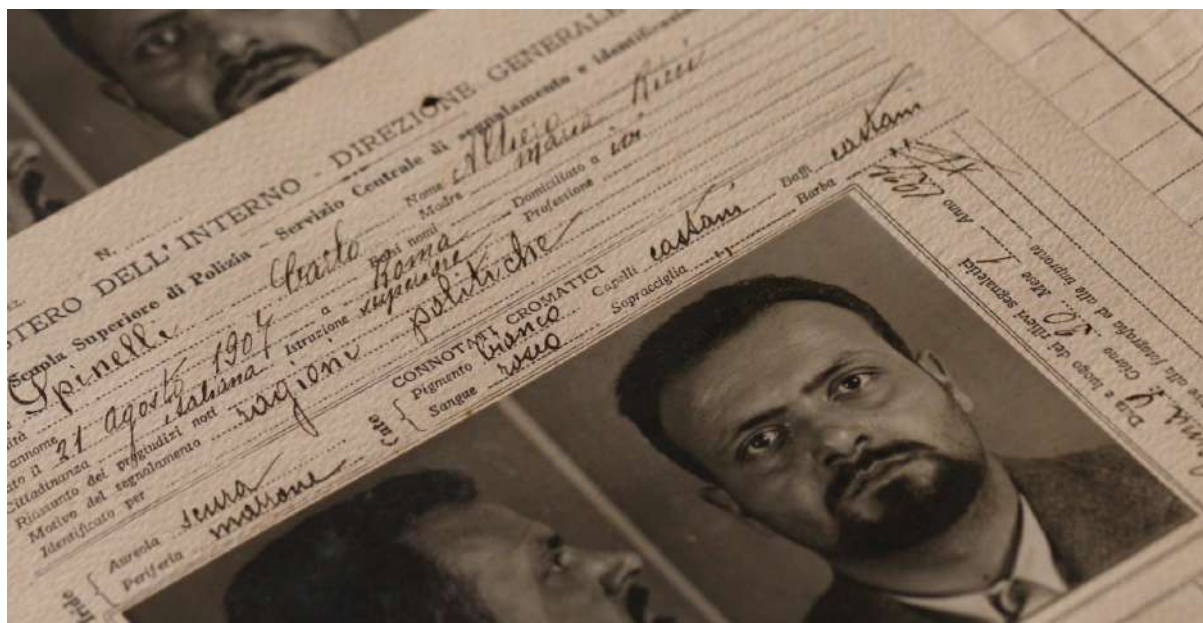 N.
STERO DELL'INTERNO - DIREZIONE GENERALE
Scuola Superiore di Polizia - Servizio Centrale di segnalamento e identificazi
Spinelli Carlo Nome Altiero
Madre Maria Ricci
21 agosto 1907 a Roma Domiciliato a ivi
Cittadinanza italiana Istruzione superiore Professione
Riassunto dei pregiudizi noti
Motivo del segnalamento ragioni politiche
Identificato per
CONNOTATI CROMATICI
Iride Aureola scura
Periferia marrone
Cute Pigmento bianco
Sangue roseo
Capelli castani Baffi castani
Sopracciglia Barba
Data e luogo dei rilievi segnaletici
Giorno 20 Mese 1 Anno